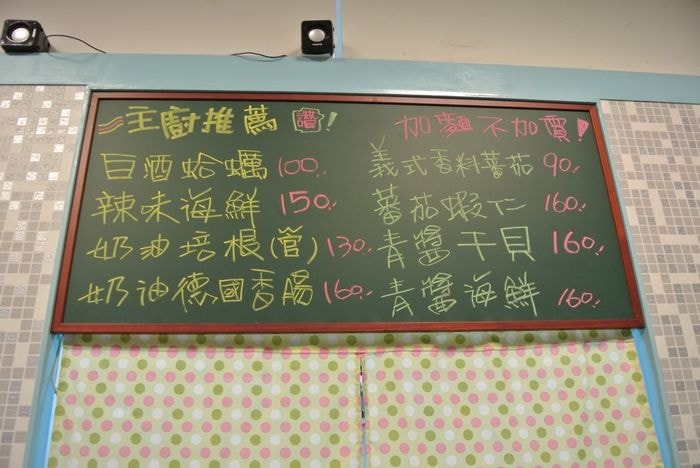 主廚推薦 讚!
巨酒蛤蠣 100.-
辣味海鮮 150.-
奶油培根(管) 130.-
奶油德國香腸 160.-
加麵不加價!
義式香料蕃茄 90.-
蕃茄蝦仁 160.-
青醬干貝 160.-
青醬海鮮 160.-